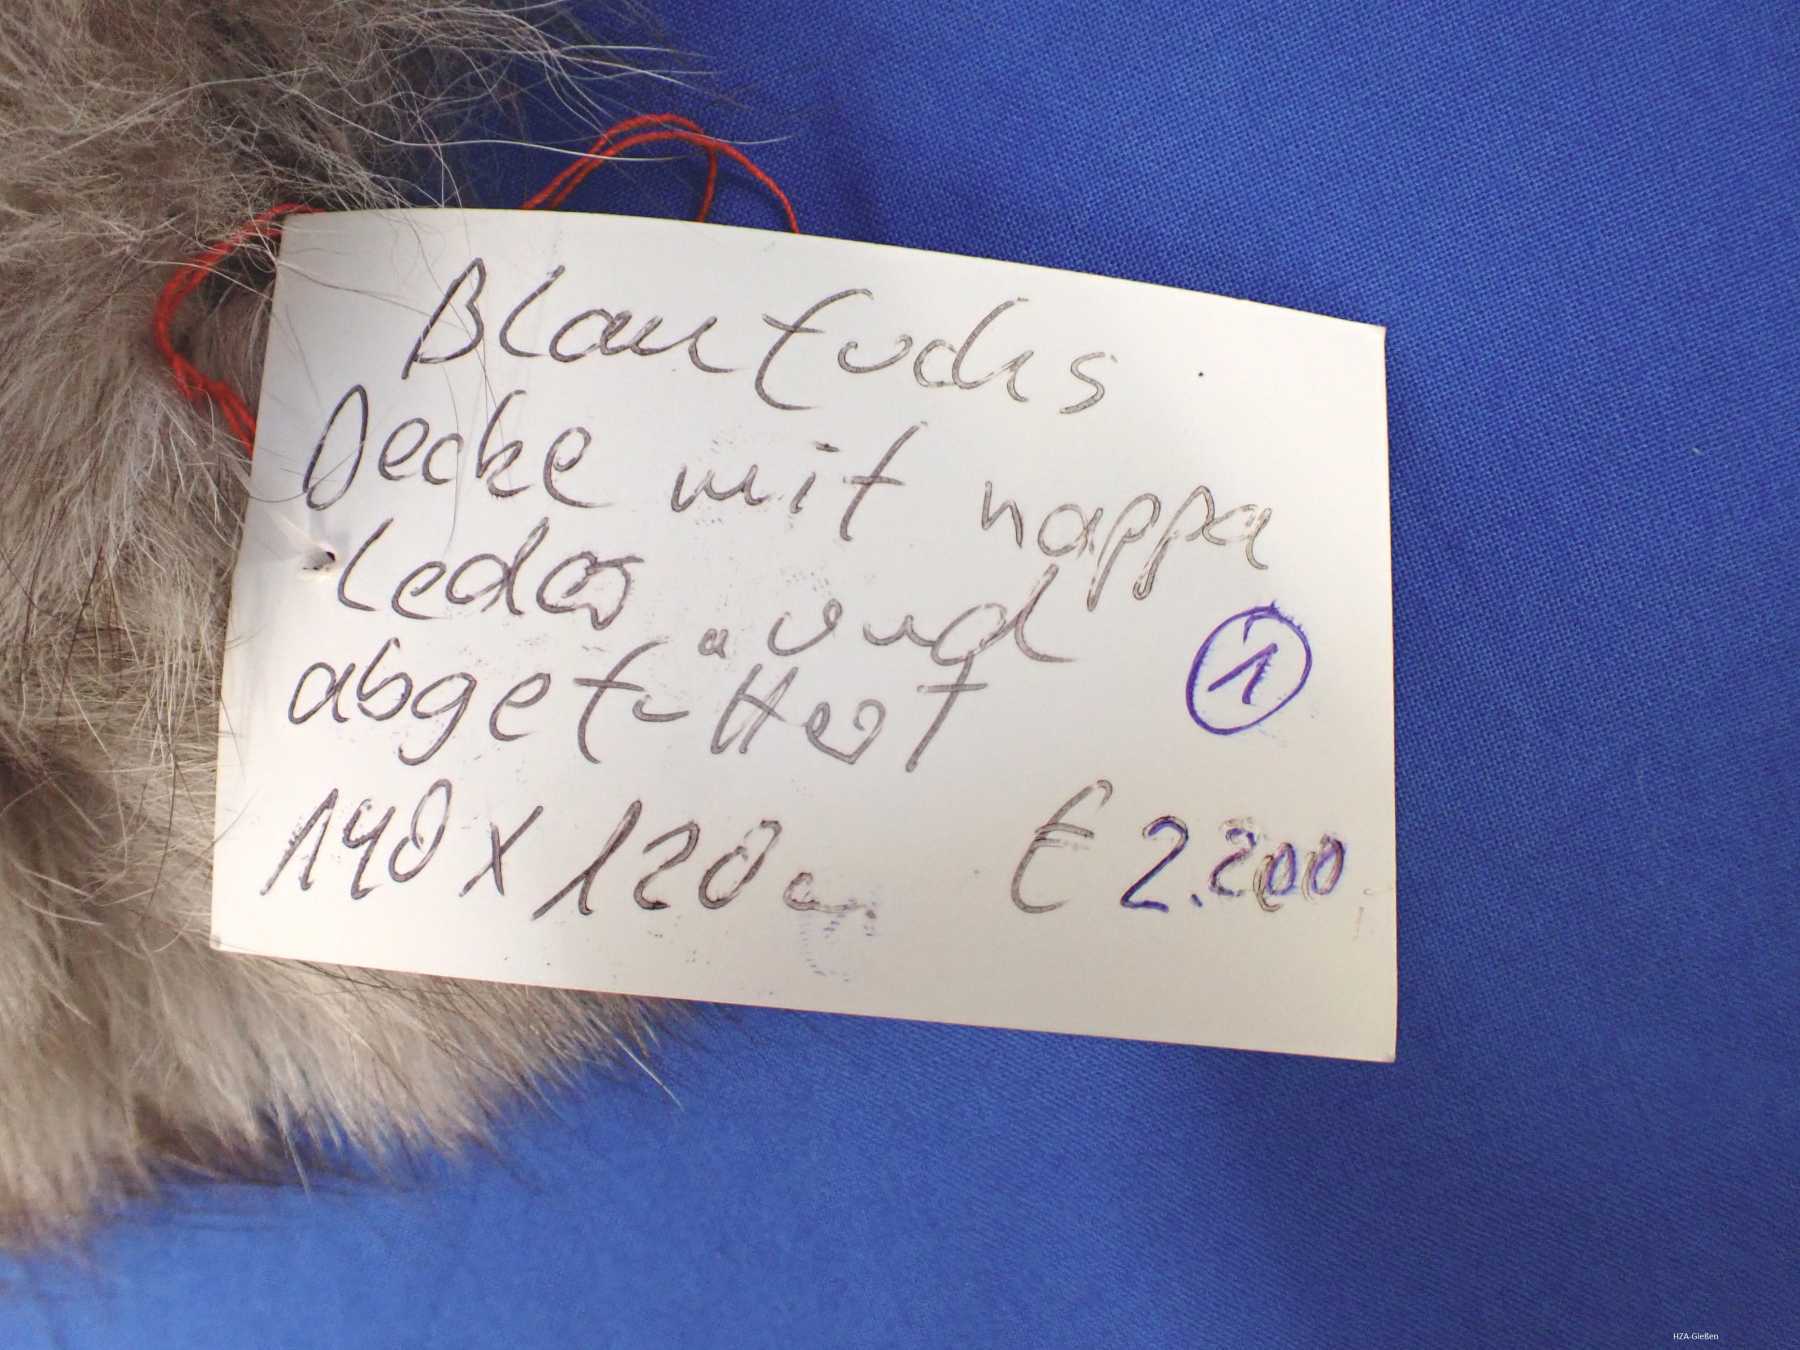 Blaufuchs
Decke mit nappa
Leder und
abgefüttert
①
140 x 120 cm € 2.200
HZA-Gießen